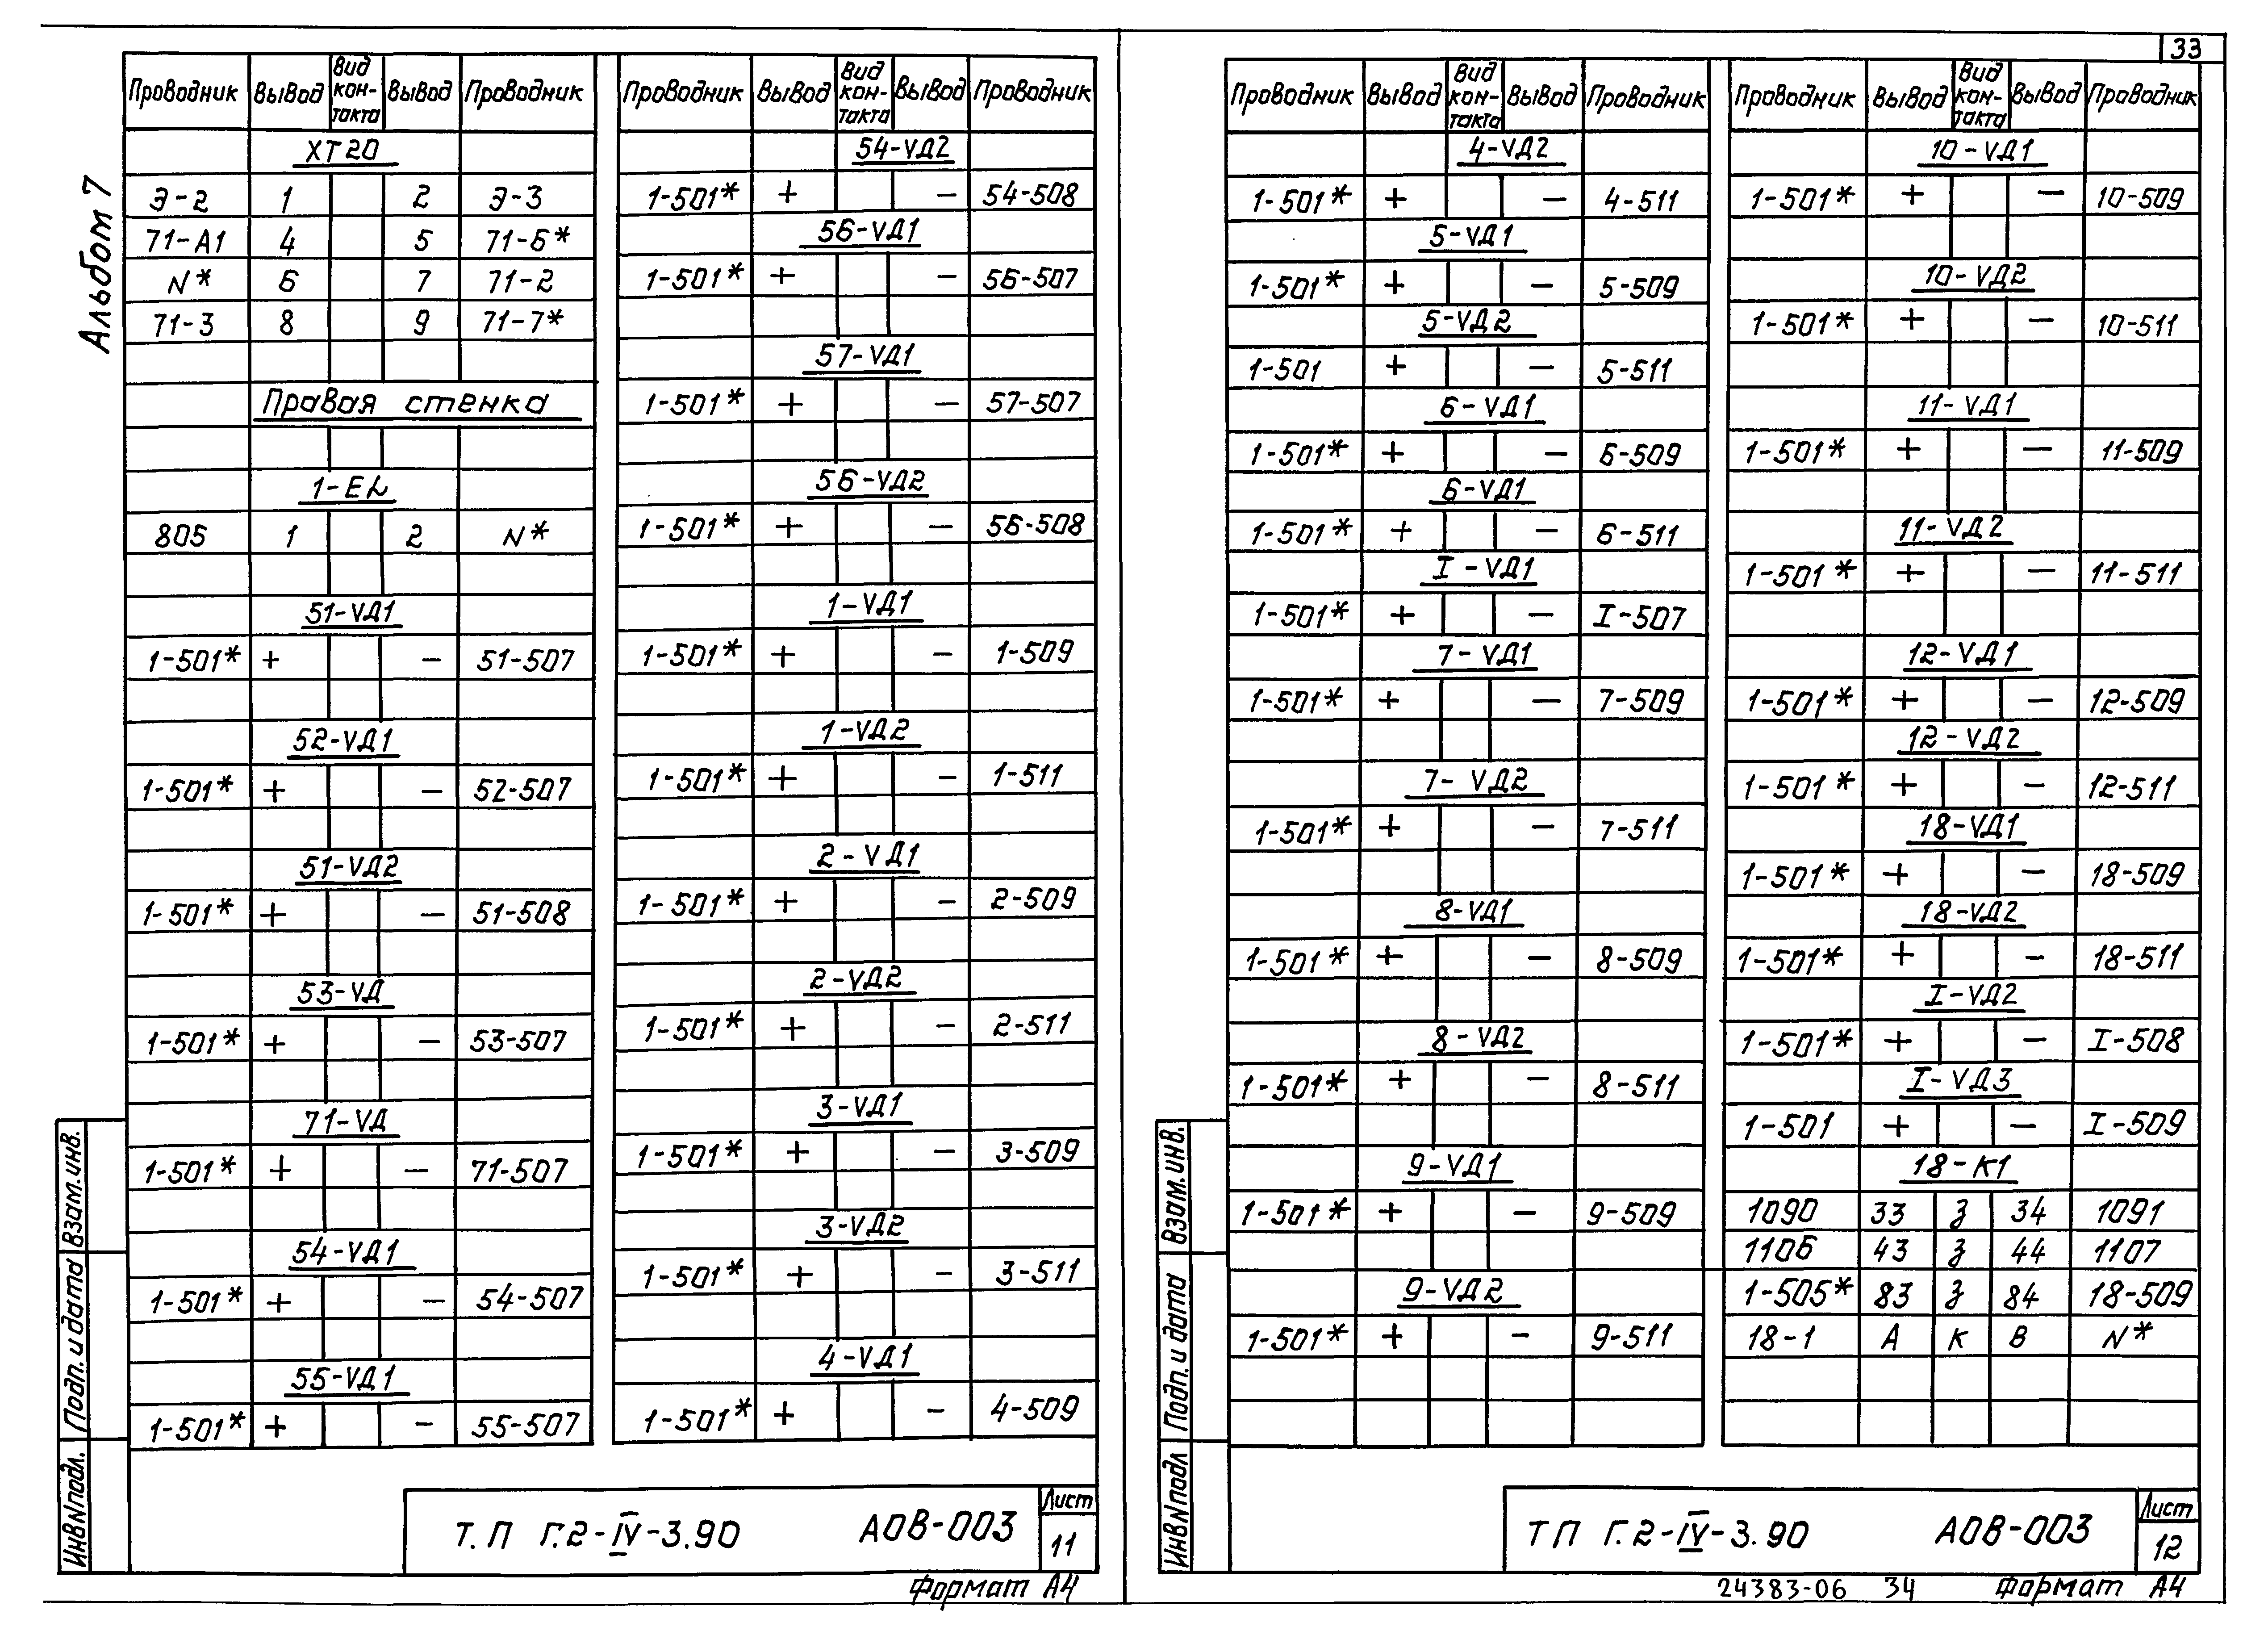 33
Альбом 7
Проводник Вывод Вид кон-такта Вывод Проводник
ХТ20
Э-2 1 2 Э-3
71-А1 4 5 71-6*
N* 6 7 71-2
71-3 8 9 71-7*
Правая стенка
1-EL
805 1 2 N*
51-VД1
1-501* + - 51-507
52-VД1
1-501* + - 52-507
51-VД2
1-501* + - 51-508
53-VД
1-501* + - 53-507
71-VД
1-501* + - 71-507
54-VД1
1-501* + - 54-507
55-VД1
1-501* + - 55-507
Проводник Вывод Вид кон-такта Вывод Проводник
54-VД2
1-501* + - 54-508
56-VД1
1-501* + - 56-507
57-VД1
1-501* + - 57-507
56-VД2
1-501* + - 56-508
1-VД1
1-501* + - 1-509
1-VД2
1-501* + - 1-511
2-VД1
1-501* + - 2-509
2-VД2
1-501* + - 2-511
3-VД1
1-501* + - 3-509
3-VД2
1-501* + - 3-511
4-VД1
1-501* + - 4-509
Взам.инв.
Подп. и дата
Инв N подл.
Т.П Г.2-IV-3.90 АОВ-003
Лист
11
Формат А4
Проводник Вывод Вид кон-такта Вывод Проводник
4-VД2
1-501* + - 4-511
5-VД1
1-501* + - 5-509
5-VД2
1-501 + - 5-511
6-VД1
1-501* + - 6-509
6-VД1
1-501* + - 6-511
I-VД1
1-501* + - I-507
7-VД1
1-501* + - 7-509
7-VД2
1-501* + - 7-511
8-VД1
1-501* + - 8-509
8-VД2
1-501* + - 8-511
9-VД1
1-501* + - 9-509
9-VД2
1-501* + - 9-511
Проводник Вывод Вид кон-такта Вывод Проводник
10-VД1
1-501* + - 10-509
10-VД2
1-501* + - 10-511
11-VД1
1-501* + - 11-509
11-VД2
1-501* + - 11-511
12-VД1
1-501* + - 12-509
12-VД2
1-501* + - 12-511
18-VД1
1-501* + - 18-509
18-VД2
1-501* + - 18-511
I-VД2
1-501* + - I-508
I-VД3
1-501 + - I-509
18-К1
1090 33 З 34 1091
1106 43 З 44 1107
1-505* 83 З 84 18-509
18-1 А К В N*
Взам.инв.
Подп. и дата
Инв N подл
ТП Г.2-IV-3.90 АОВ-003
Лист
12
24383-06 34 Формат А4